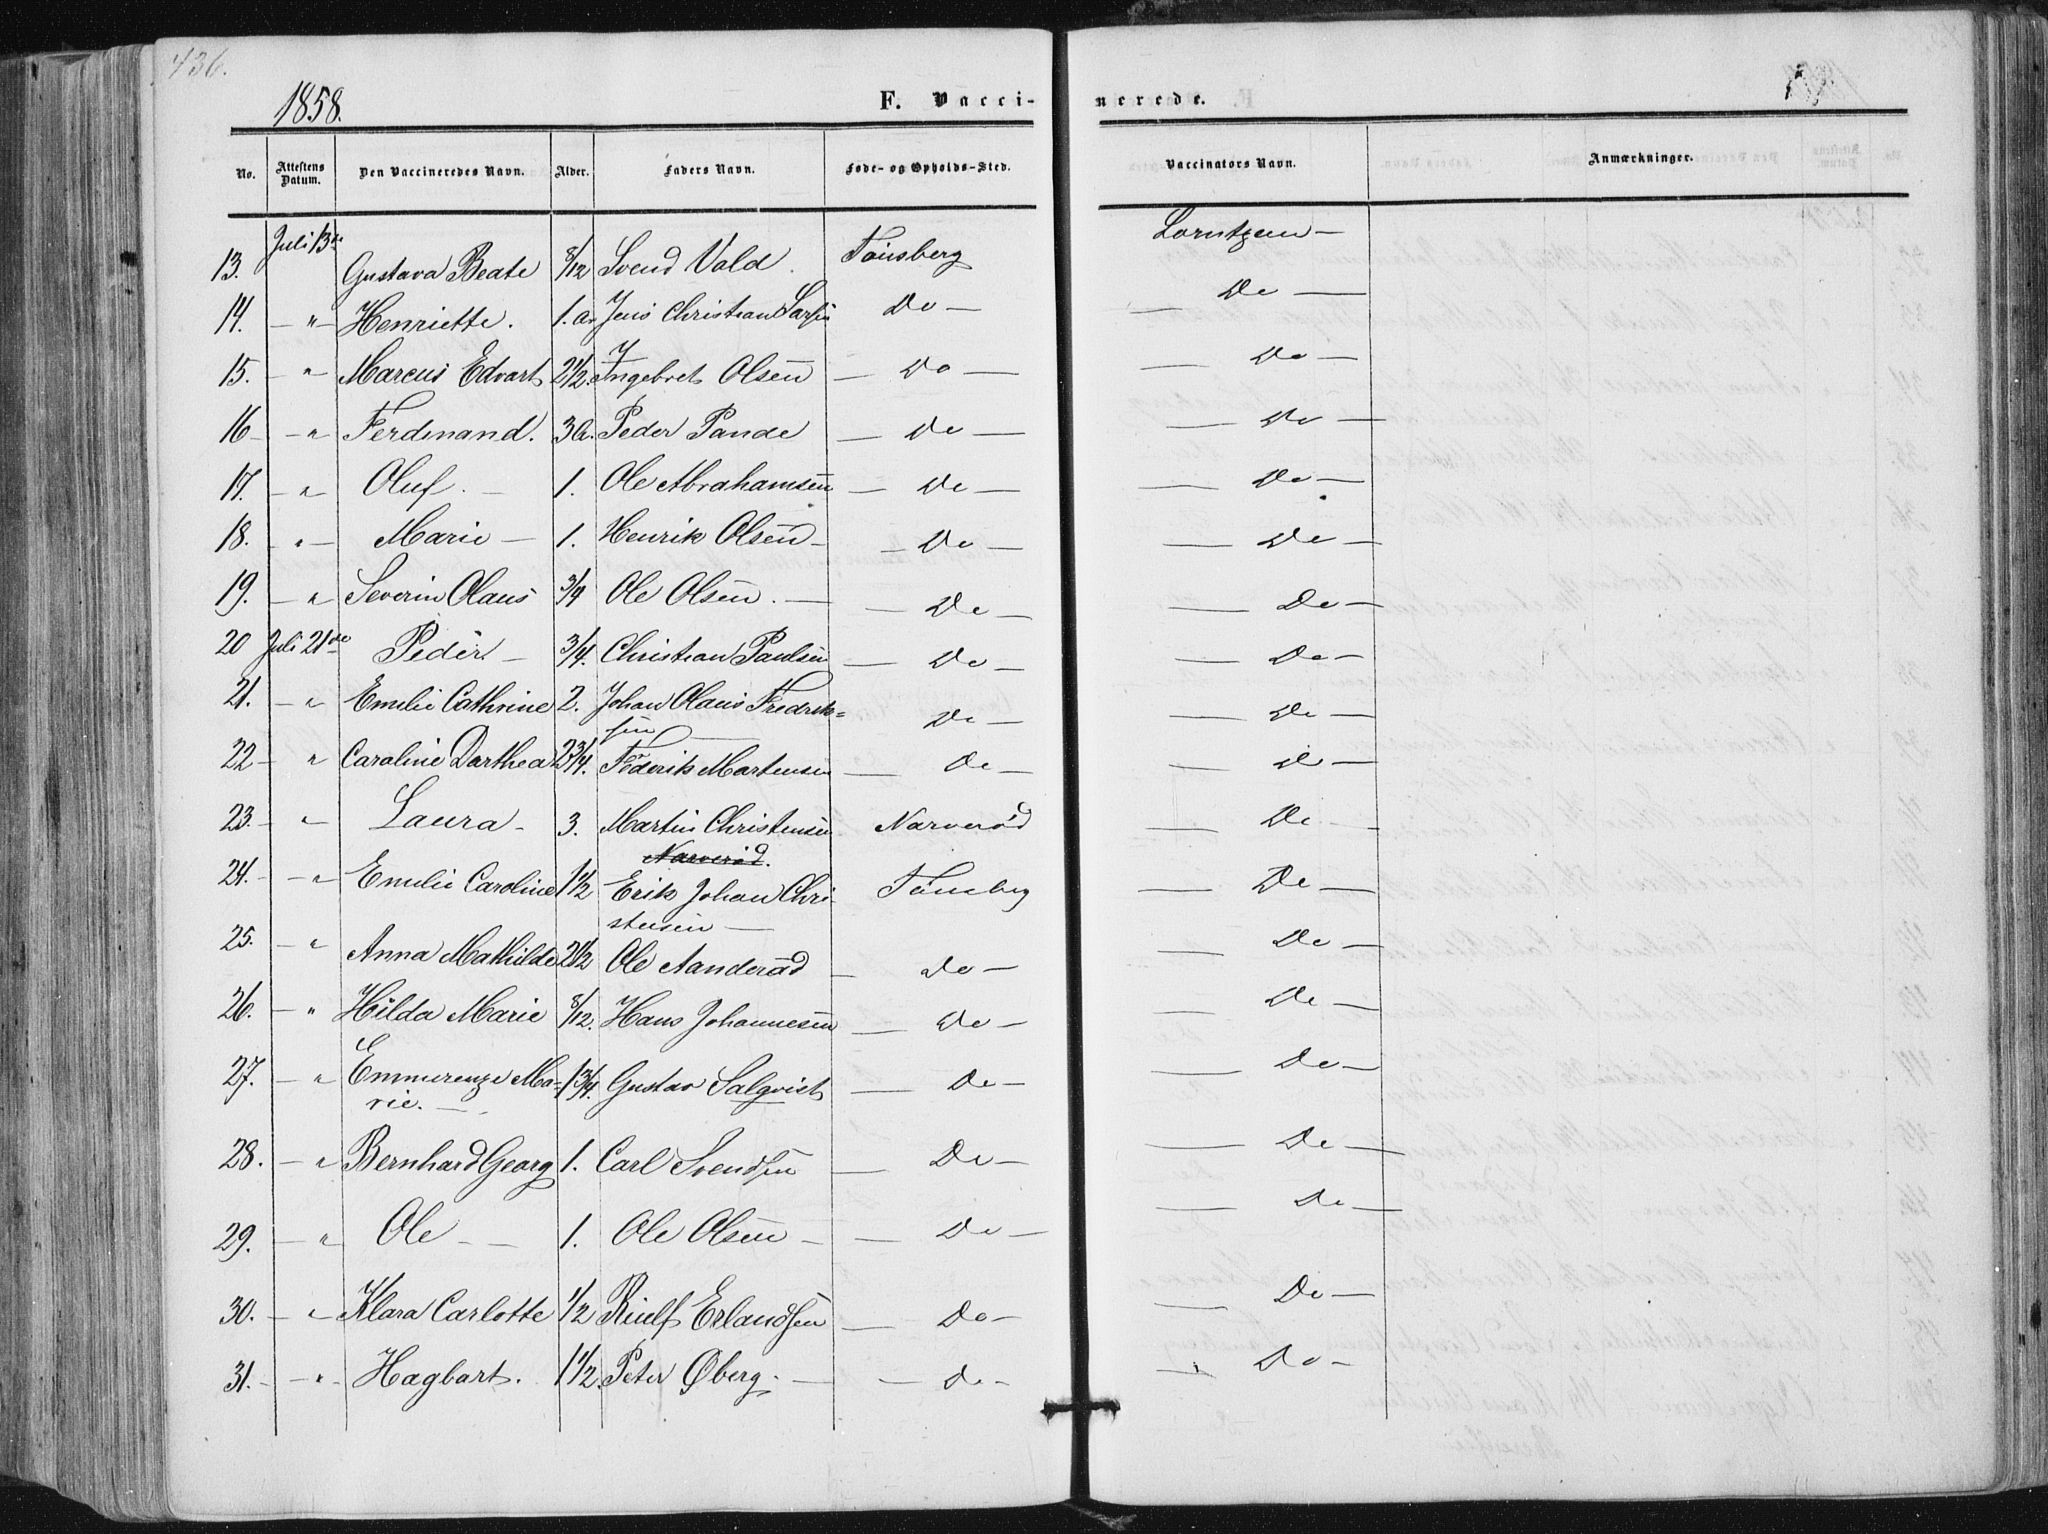 436.
1858.
F. Vaccinerede.
No. Attestens Datum. Den Vaccineredes Navn. Alder. Faders Navn. Føde- og Opholds-Sted. Vaccinators Navn. Anmærkninger.
13. Juli 13de Gustava Beate 8/12 Svend Vold. Tönsberg Lorntzen —
14. — " — Henriette. 1. a. Jens Christian Do — — Do —
15. — " Marcus Edvart 2 1/2. Ingebret Olsen — Do — — Do —
16 — — " Ferdinand. 3 a. Peder Pande — Do — — Do —
17. — " — Oluf. — 1. Ole Abrahamsen — Do — — Do —
18. — " — Marie — 1. Henrik Olsen — — Do — — Do —
19. — " Severin Olaus 3/4 Ole Olsen. — — Do — — Do —
20 Juli 21de Peder. — 3/4. Christian Paulsen — Do — — Do —
21. — " Emilie Cathrine 2. Johan Olaus Fredrik= Do — — Do —
sen —
22 — " Caroline Dorthea 2 3/4. Federik Martensen — Do — — Do —
23. — " Laura — 3. Martin Christensen Narveröd — Do —
Narveröd.
24. — — " Emilie Caroline 1 1/2 Erik Johan Chri- Tönsberg — Do —
stensen —
25. — " Anna Mathilde 2 1/2 Ole Aanderöd — Do — — Do —
26. — " Hilda Marie 8/12. Hans Johannesen — Do — — Do —
27. — " Emmerenze Ma= 1 3/4. Gustav Salqvist — Do — — Do —
rie. —
28. — " Bernhard Georg 1. Carl Svendsen — Do — — Do —
29. — " Ole — 1. Ole Olsen — — Do — — Do —
30. — " Klara Carlotte 1/2 Riulf Erlandsen — Do — — Do —
31. — — " — Hagbart. 1 1/2. Peter Øberg. — — Do — — Do —